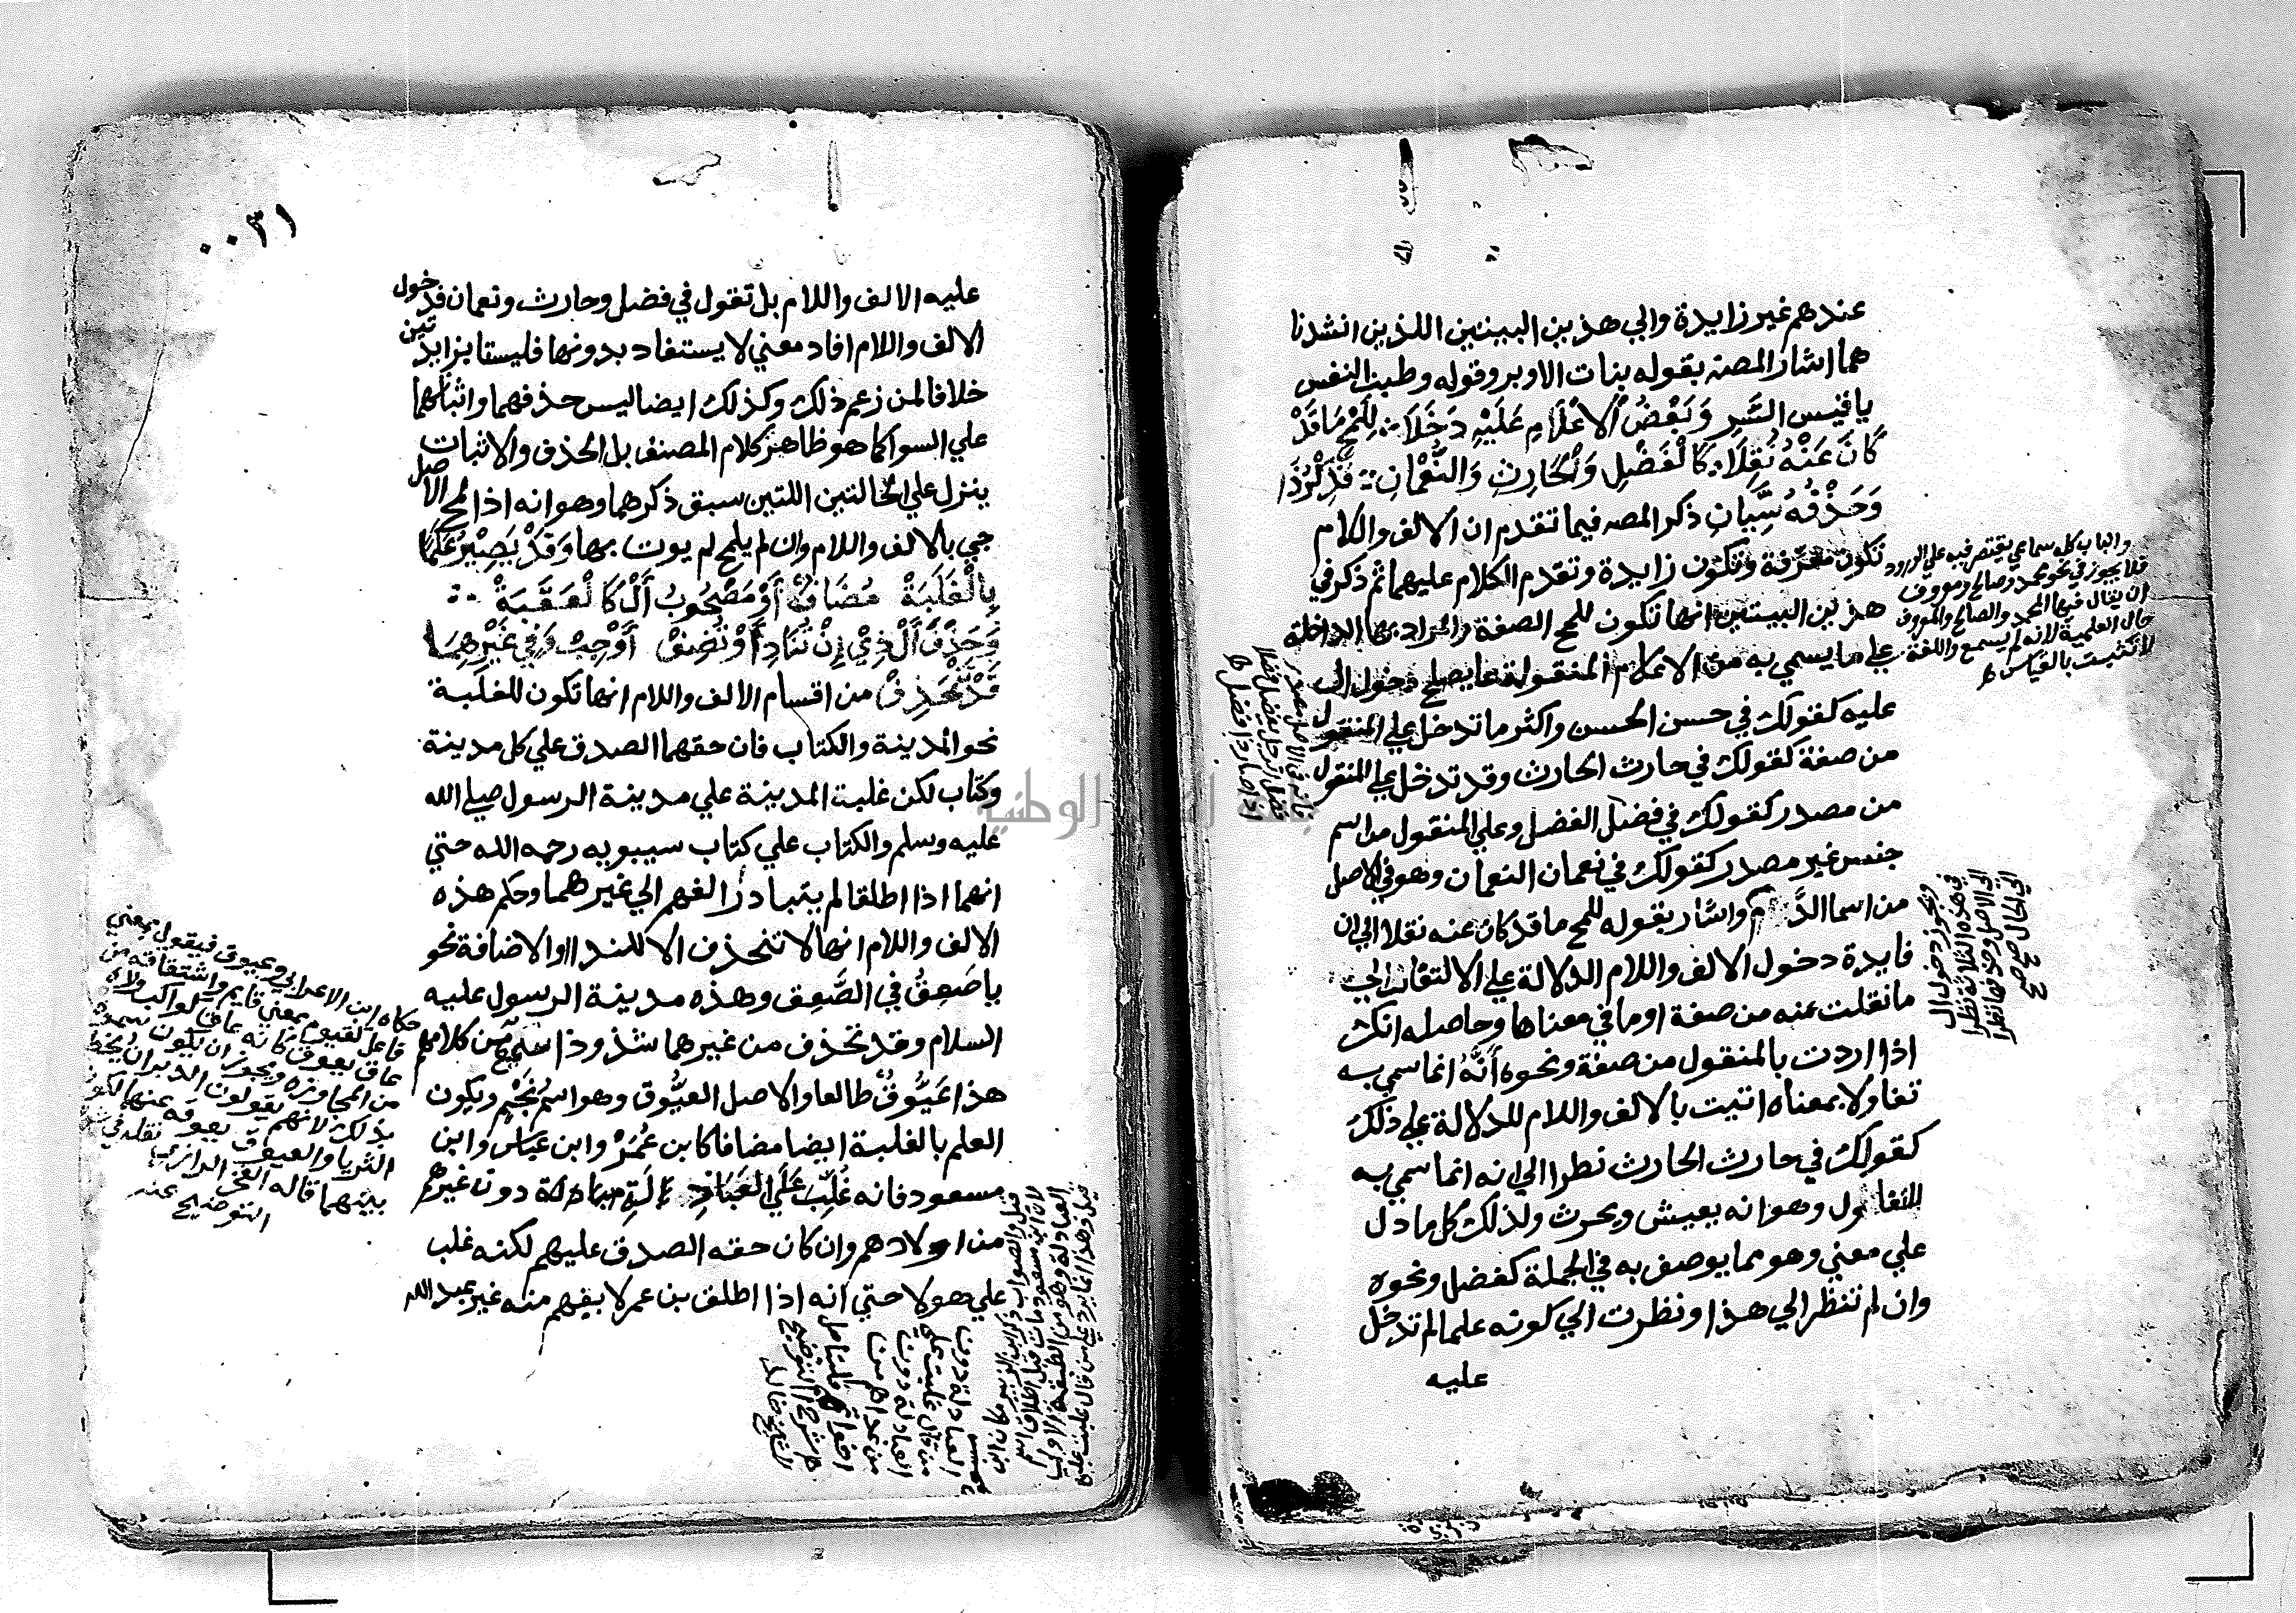 عندهم غير زايدة والي هذين البيتين اللذين انشدنا
هما اشار المصنف بقوله بنات الاوبر وقوله وطبت النفس
يا قيس السَّرِي وَبَعْضُ الاَعْلَامِ عَلَيْهِ دَخَلَا لِلَمْحِ مَا قَدْ
كَانَ عَنْهُ نُقِلَا كَالْفَضْلِ وَالْحَارِثِ وَالنُّعْمَانِ فَذِكْرُ ذَا
وَحَذْفُهُ سِّيَانِ ذكر المصه فيما تقدم ان الالف واللام
تكون معرّفة وتكون زايدة وتقدم الكلام عليهما ثم ذكر في
هذين البيتين انها تكون للمح الصفة والمراد بها الداخلة
علي ما يسمي به من الاعلام المنقولة مما يصلح دخول ال
عليه كقولك في حسن الحسن واكثر ما تدخل علي المنقول
من صفة كقولك في حارث الحارث وقد تدخل علي المنقول
من مصدر كقولك في فضل الفضل وعلي المنقول من اسم
جنس غير مصدر كقولك في نعمان النعمان وهو في الاصل
من اسما الدَّم واشار بقوله للمح ما قد كان عنه نقلا الي ان
فايدة دخول الالف واللام الدلالة علي الالتفات الي
ما نقلت عنه من صفة او ما في معناها وحاصله انك
اذا اردت بالمنقول من صفة ونحوه أَنَّهُ انما سمي به
تفاولا بمعناه اتيت بالالف واللام للدلالة علي ذلك
كقولك في حارث الحارث نظرا الي انه انما سمي به
للتفاول وهو انه يعيش ويحرث ولذلك كل ما دل
علي معني وهو مما يوصف به في الجملة كفضل ونحوه
وان لم تنظر الي هذا ونظرت الي كونه علما لم تدخل
عليه
والباب كله سماعي يقتصر فيه علي الورود
فلا يجوز في نحو محمد وصالح ومعروف
ان يقال فيها المحمد والصالح والمعروف
حال العلمية لانه لم يسمع واللغة
لا تثبت بالقياس
ويجوز دخول ال
في هذه الثلاثة نظرا
الي الاصل وحذفها نظرا
الي الحال صح صح
٠٠٣١
عليه الالف واللام بل تقول في فضل وحارث ونعمان فدخول
الالف واللام افاد معني لا يستفاد بدونها فليستا بزايدتين
خلافا لمن زعم ذلك وكذلك ايضا ليس حذفهما واثباتهما
علي السوا كما هو ظاهر كلام المصنف بل الحذف والاثبات
ينزل علي الحالتين اللتين سبق ذكرهما وهو انه اذا لمح الاصل
جي بالالف واللام وان لم يلمح لم يوت بها وَقَدْ يَصِيْرُ عَلَمًا
بِالْغَلَبَةْ مُضَافٌ أَوْ مَصْحُوبُ أَلْ كَالْعَقَبَةْ
وَحَذْفَ أَلْ ذِيْ إِنْ تُنَادِ أَوْ تُضِفْ أَوْجِبْ وَفِي غَيْرِهِمَا
قَدْ تَنْحَذِفْ من اقسام الالف واللام انها تكون للغلبة
نحو المدينة والكتاب فان حقهما الصدق علي كل مدينة
وكتاب لكن غلبت المدينة علي مدينة الرسول صلي الله
عليه وسلم والكتاب علي كتاب سيبويه رحمه الله حتي
انهما اذا اطلقا لم يتبادر الفهم الي غيرهما وحكم هذه
الالف واللام انها لا تنحذف الا للندا او الاضافة نحو
يا صَعِقُ في الصَّعِق وهذه مدينة الرسول عليه
السلام وقد تحذف من غيرهما شذوذا سُمِعَ من كلامهم
هذا عَيُّوقٌ طالعا والاصل العيُّوق وهو اسم نَجْمٍ ويكون
العلم بالغلبة ايضا مضافا كابن عُمَرْ وابن عباس وابن
مسعود فانه غُلِّبَ عَلَي العَبَادِلَةِ دون غيرهم
من اولادهم وان كان حقه الصدق عليهم لكنه غلب
علي هولا حتي انه اذا اطلق بن عمر لا يفهم منه غير عبد الله
حكاه ابن الاعرابي وعيوق فيعول بمعني
فاعل كقيوم بمعني قايم واشتقاقه من
عاق يعوق كانه عاق كواكب وراه
من المجاوزة ويجوز ان يكون سموه
بذلك لانهم يقولون الدبران يخطب
الثريا والعيوق يعوقه عنها لكونه
بينهما قاله الفخر الرازي نقله في
التوضيح عنه